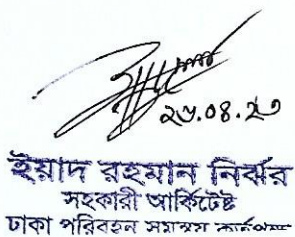 ২৬.০৪.২৩
ইয়াদ রহমান নির্ঝর
সহকারী আর্কিটেক্ট
ঢাকা পরিবহন সমন্বয় কর্তৃপক্ষ